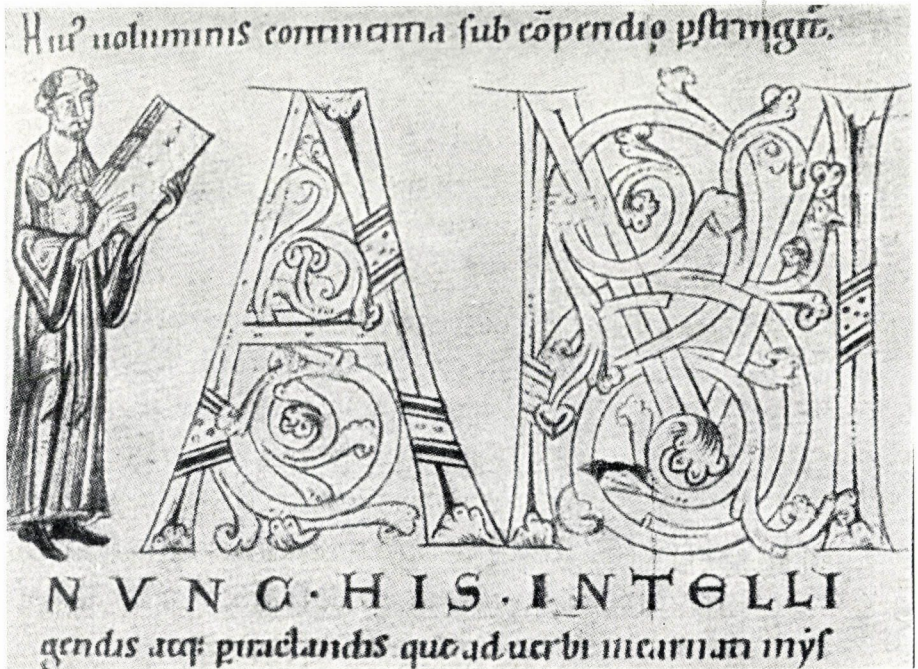 Hui⁹ uoluminis continentia sub cōpendio ꝑstringit᷑.
AM
NVNC·HIS·INTELLI
gendis atq; ꝑtractandis que ad uerbi incarnati mẏſ